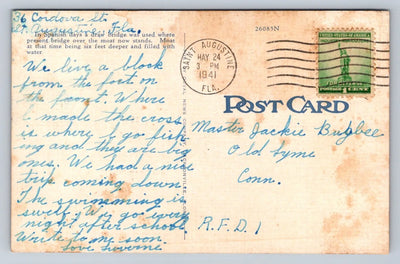 36 Cordova St.
St. Augustine, Fla.
In Spanish days a draw bridge was used where
present bridge over the moat now stands. Moat
at that time being six feet deeper and filled with
water.
We live a block
from the fort on
the front. Where
I made the cross
is where I go fish-
ing and they are big
ones. We had a nice
trip coming down.
The swimming is
swell. We go every
night after school.
Write to me soon.
Love Laverne
26085N
SAINT AUGUSTINE
MAY 24
3 PM
1941
FLA.
UNITED STATES OF AMERICA
POSTAGE 1 CENT
POST CARD
Master Jackie Bugbee
Old Lyme
Conn.
R.F.D. 1